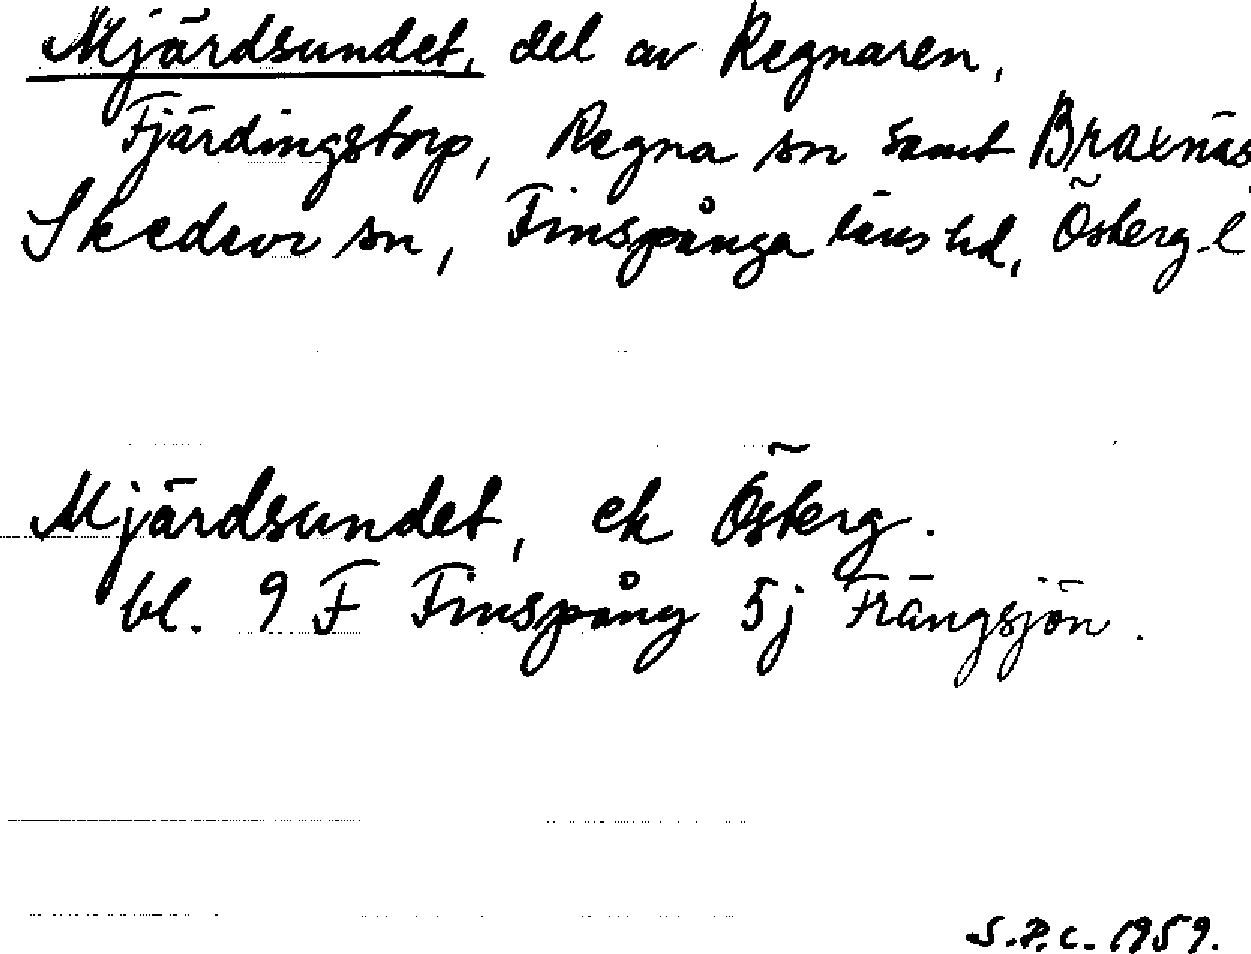 Mjärdsundet, del av Regnaren,
Fjärdingstorp, Regna sn samt Braxnäs,
Skedevi sn, Finspånga läns hd, Östergl
Mjärdsundet, ek Österg.
bl. 9 F Finspång 5j Trängsjön.
S.P.C. 1959.